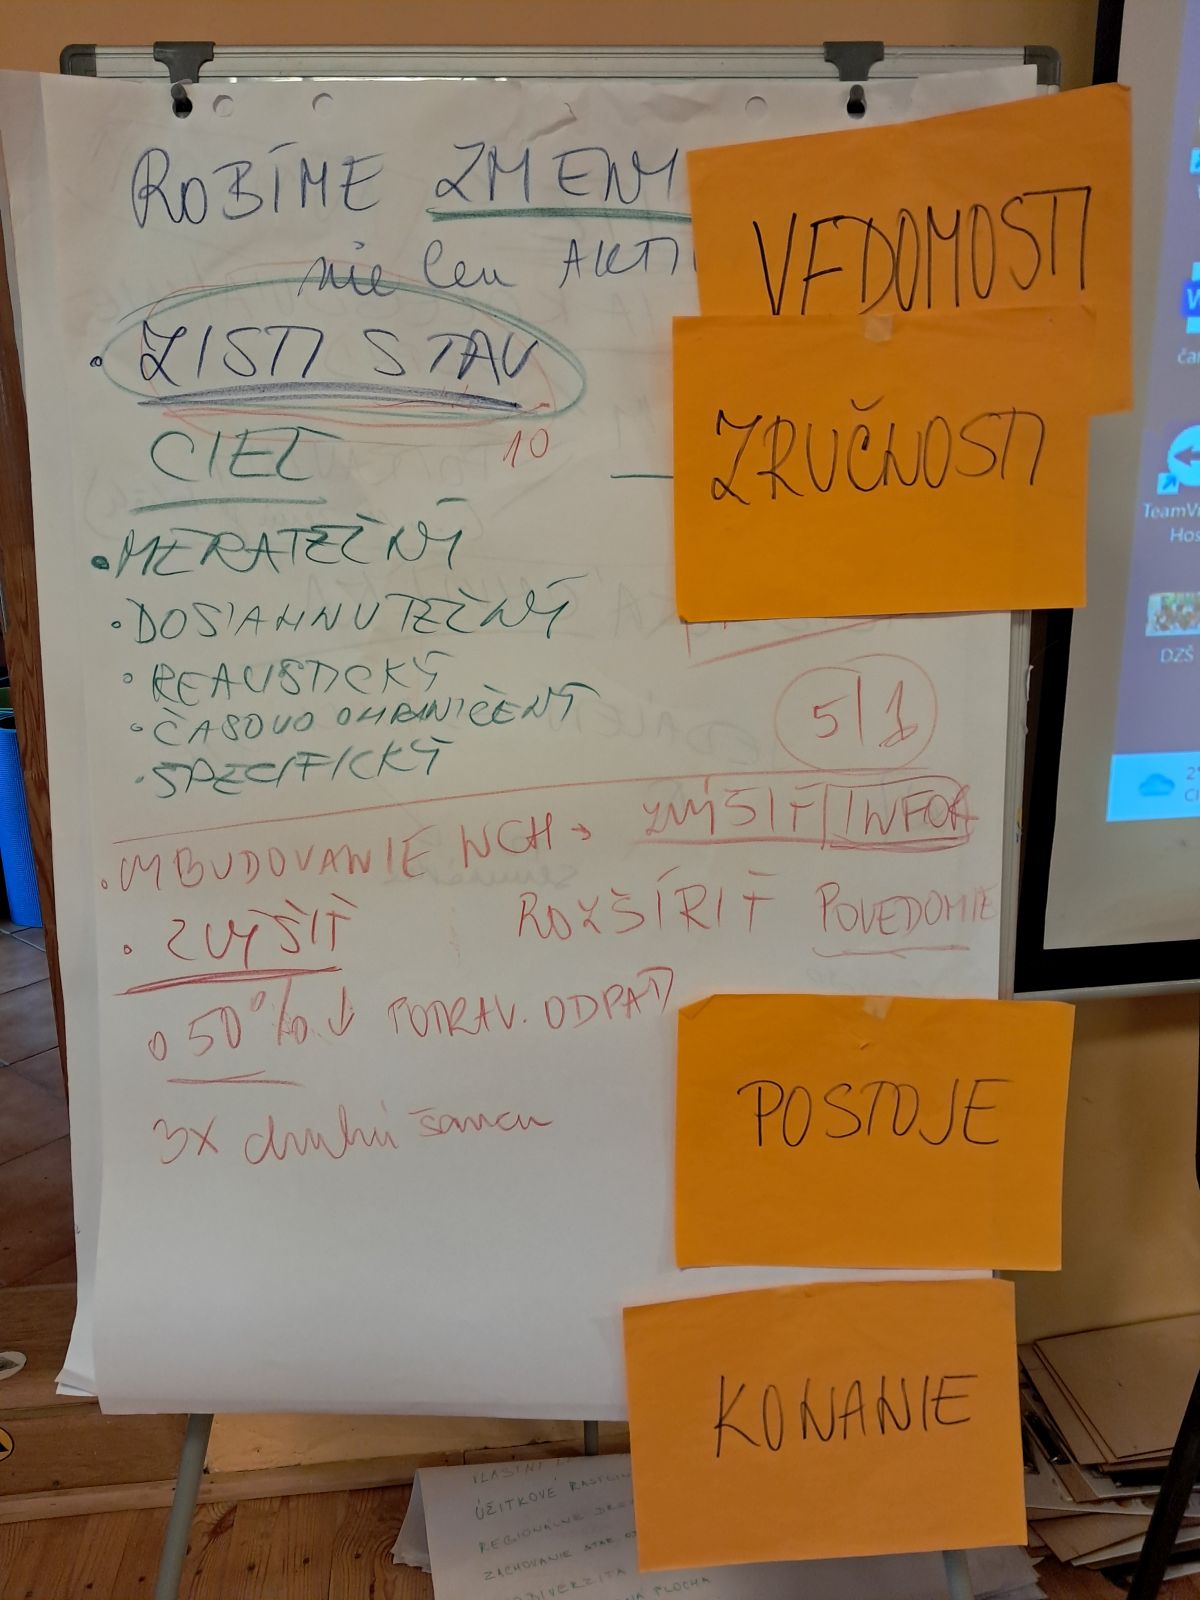 ROBÍME ZMENY
nie len AKTI
VEDOMOSTI
• ZISTI STAV
10
CIEĽ
ZRUČNOSTI
• MERATEĽNÝ
• DOSIAHNUTEĽNÝ
• REALISTICKÝ
• ČASOVO OHRANIČENÝ
• ŠPECIFICKÝ
5/1
• VYBUDOVANIE → ZVÝŠIŤ INFOR
• ZVÝŠIŤ ROZŠÍRIŤ POVEDOMIE
o 50% ↓ POTRAV. ODPAD
3x druhú šancu
POSTOJE
KONANIE
VLASTNÍ
ÚŽITKOVÉ RASTLIN
REGIONÁLNE DRE
ZACHOVANIE STAR
DIVERZITA
PLOCHA
TeamVi
Hos
DZŠ